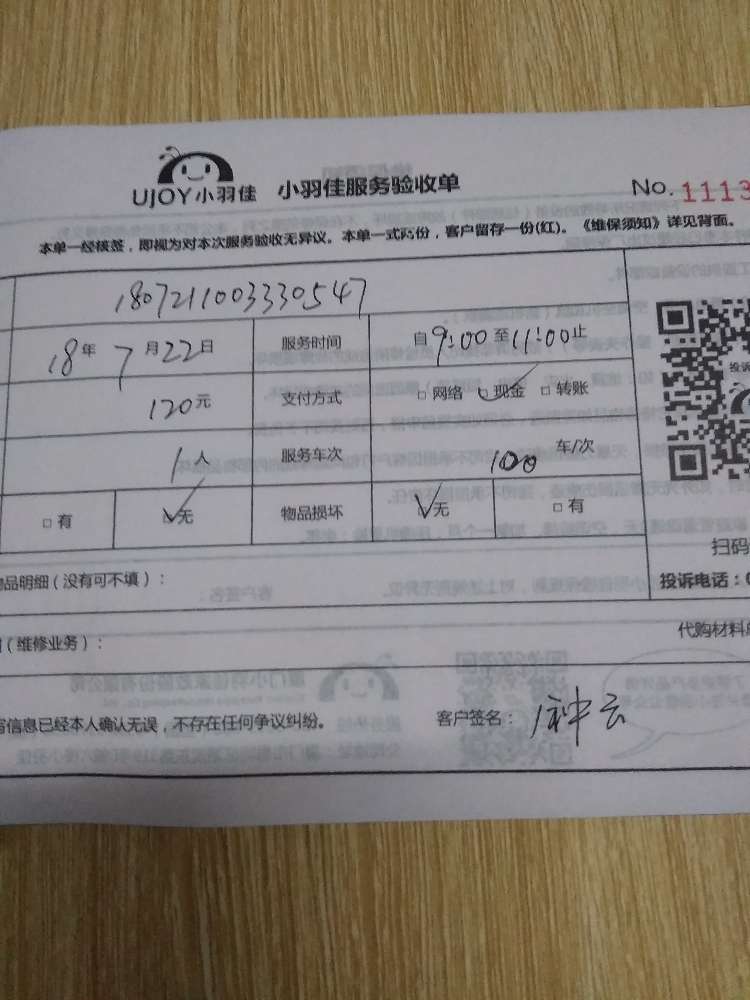 UJOY小羽佳 小羽佳服务验收单 No.1113
本单一经核签，即视为对本次服务验收无异议。本单一式两份，客户留存一份(红)。《维保须知》详见背面。
1807211003330547
18年7月22日 服务时间 自9:00至11:00止
120元 支付方式 □网络 □现金 □转账
1人 服务车次 100 车/次
□有 □无 物品损坏 □无 □有
投诉
扫码
品明细（没有可不填）： 投诉电话：0
（维修业务）： 代购材料
写信息已经本人确认无误，不存在任何争议纠纷。 客户签名：